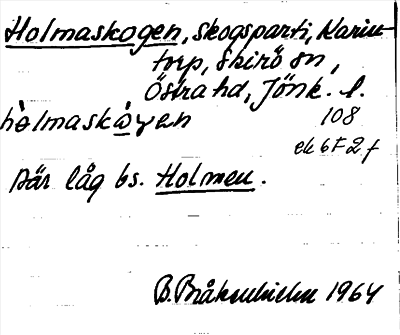 Holmaskogen, skogsparti, Karins-
torp, Skirö sn,
Östra hd, Jönk. l.
hòlmaskọ̀γen 108
ek 6F2f
Där låg bs. Holmen.
B. Bråkenhielm 1964